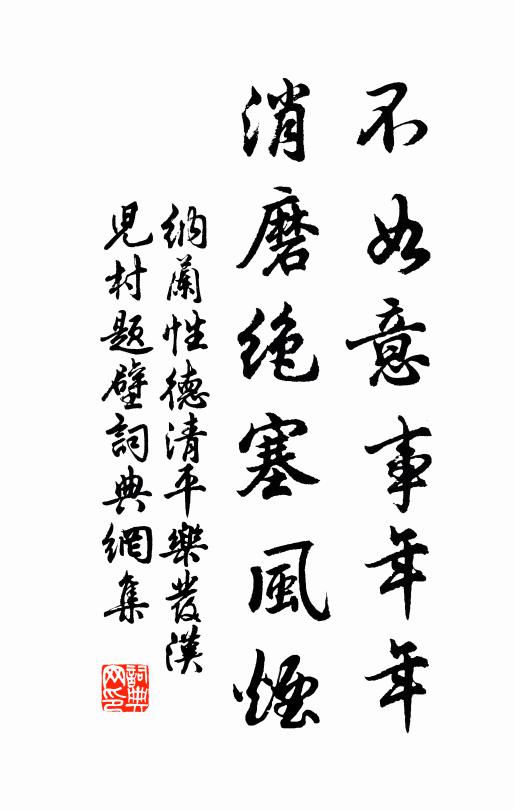 不如意事年年
消磨絶塞風煙
納蘭性德清平樂發漢
児村題壁詞典網集
詞典網印